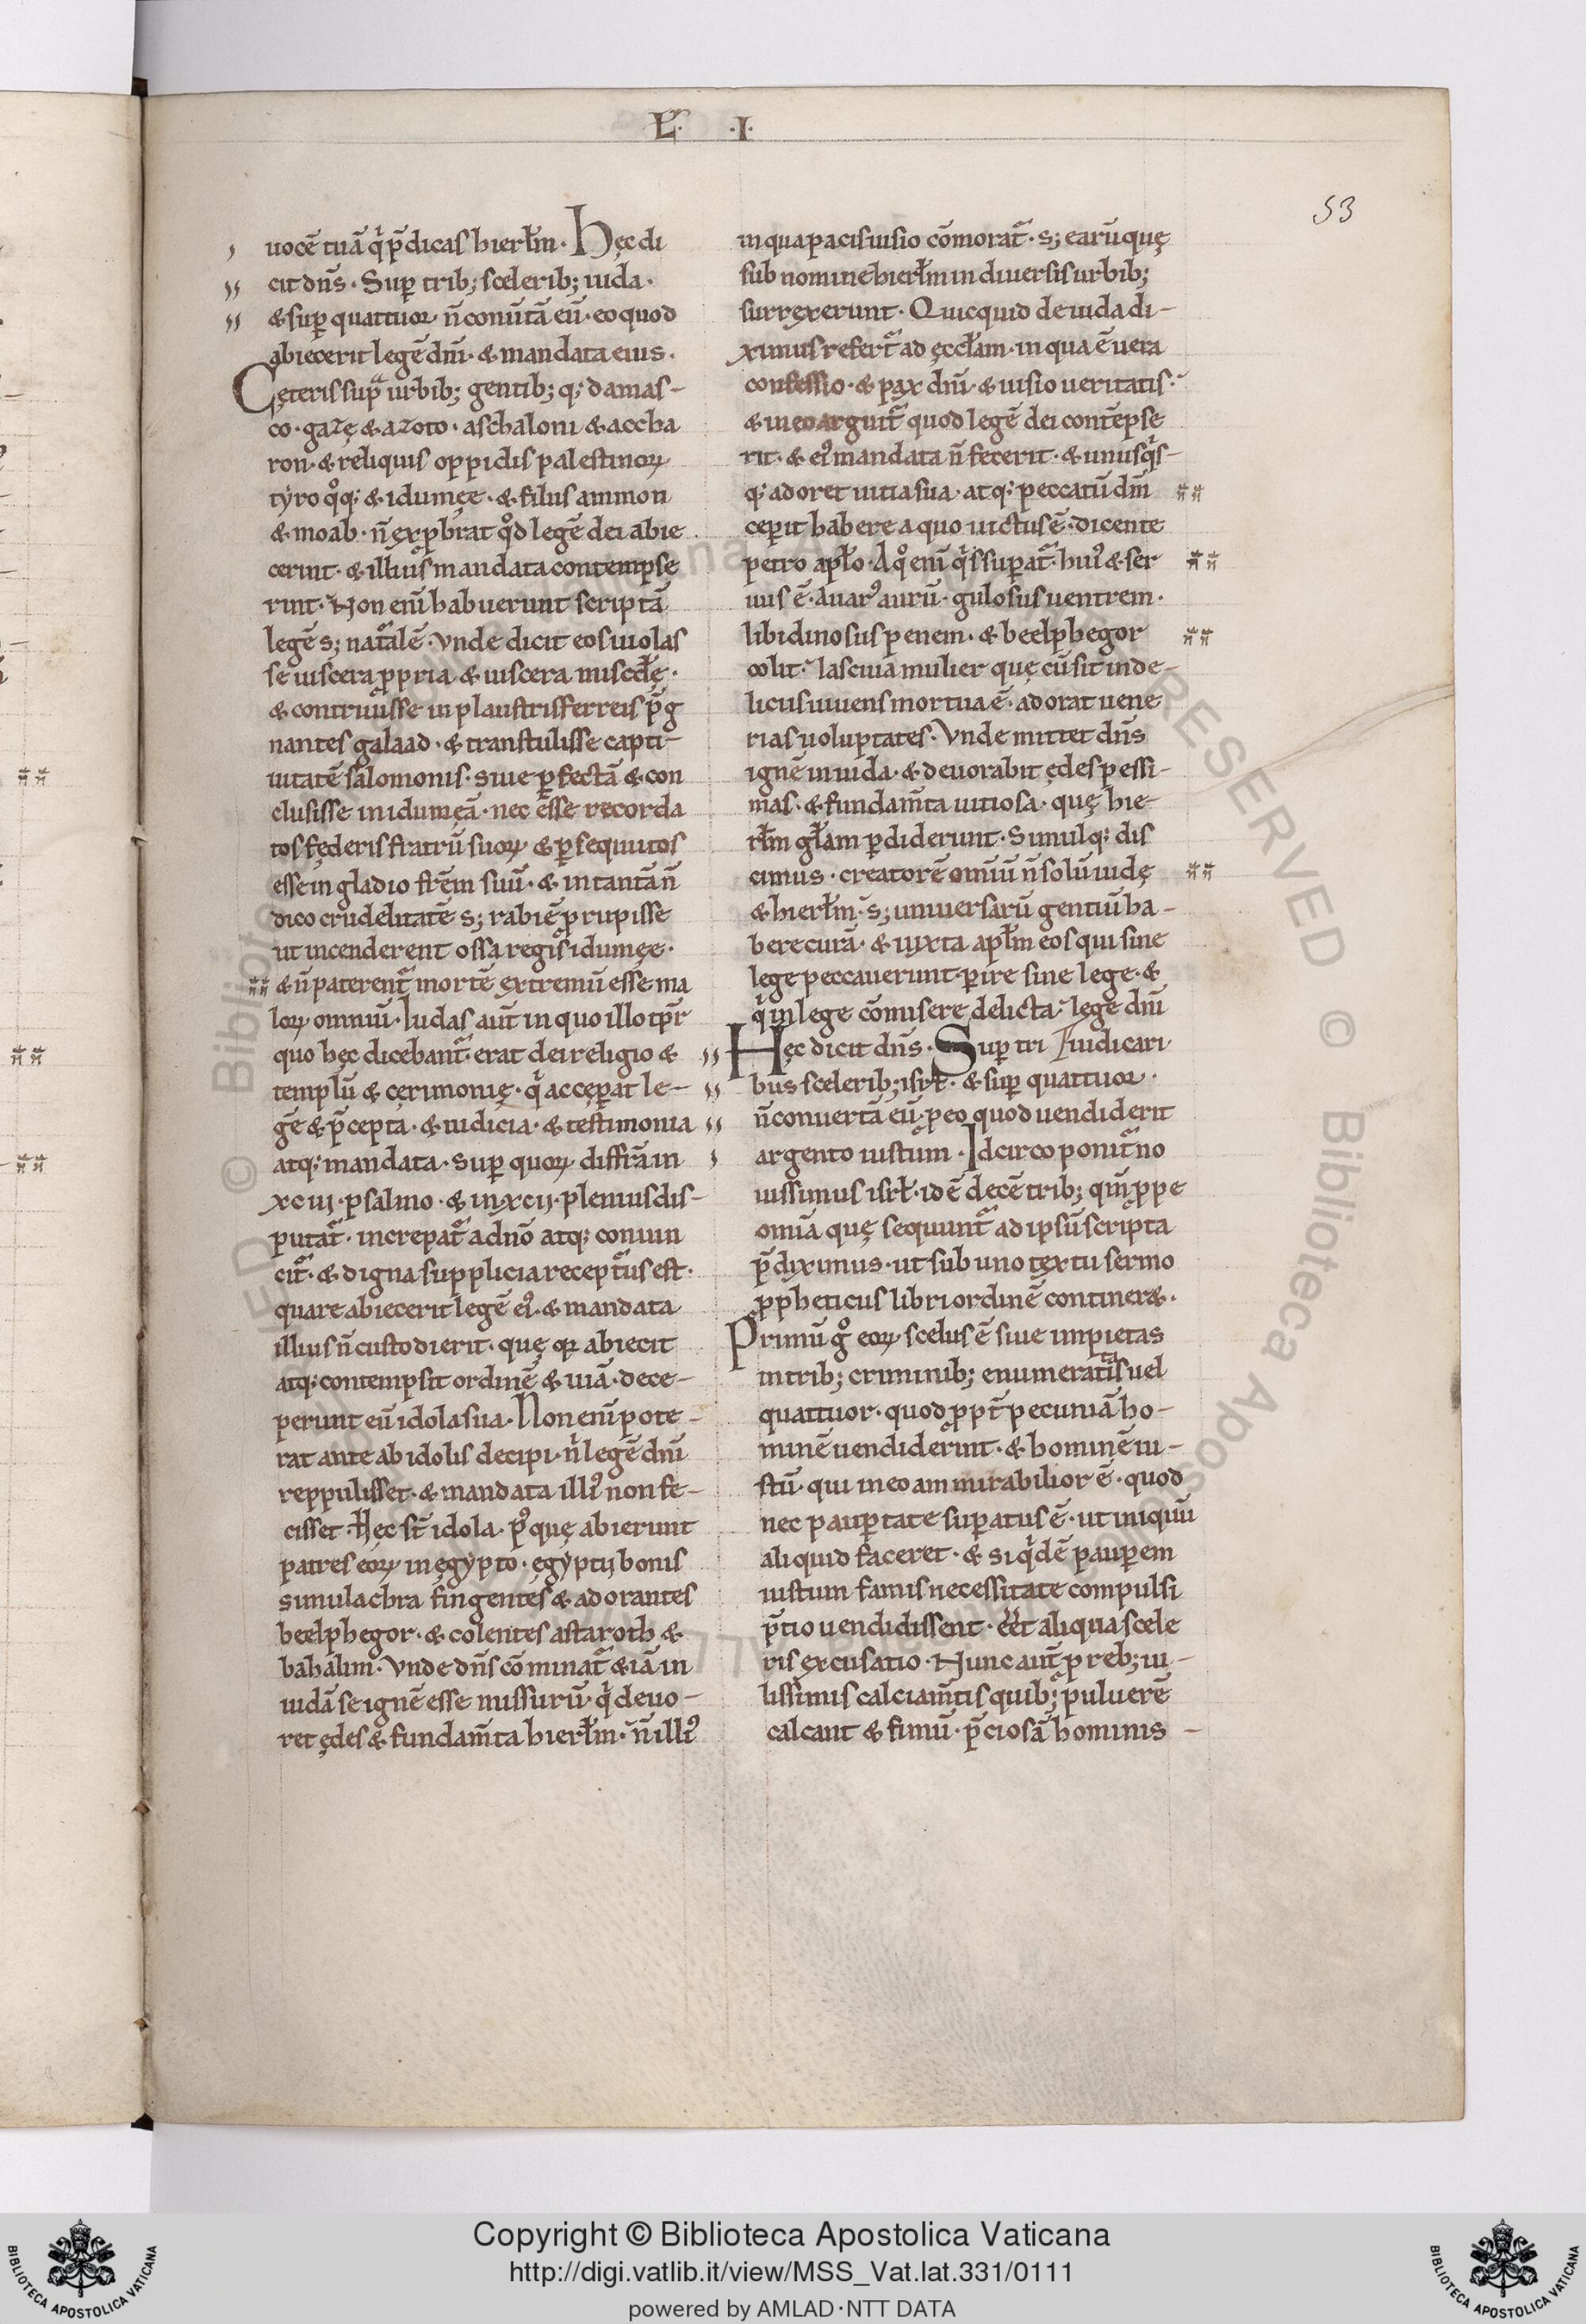 L͛. .I.
53
uocē tuā q̇ p̄dicas hierłm. Hęc di
cit dn̄s. Sup̱ trib; sceleribꝫ iuda.
& sup̱ quattuor n̄ conūtā eū. eo quod
abiecerit legē dn̄i. & mandata eius.
Cęteris sup͛ urbib; gentib; q; damas-
co. gazę & azoto. aschaloni & accha
ron. & reliquis oppidis palestinoꝝ
tyro qͦq; & idumęe. & filiis ammon
& moab. n̄ exp̱brat qͦd legē dei abie
cerint. & illius mandata contempse
rint. Non eni̅ habuerunt scriptā
legē s; nat͛alē. Vnde dicit eos uiolas
se uiscera ꝓpria & uiscera misc̄dię.
& contriuisse in plaustris ferreis p̄g
nantes galaad. & transtulisse capti-
uitatē salomonis. siue p̱fectā & con
clusisse in idumęā. nec ēsse recorda
tos fęderis fratrū suoꝝ & p̱sequutos
esse in gladio frēm suū. & in tantā n̄
dico crudelitatē s; rabiē ꝓrupisse
ut incenderent ossa regis idumęe.
& ū paterent͛ mortē extremū esse ma
loꝝ omniū. Iudas aut̄ in quo illo tp̄r
quo hęc dicebant͛. erat dei religio &
templū & cęrimonię. q̇ accep̱at le-
gē & p̄cepta. & iudicia. & testimonia
atq; mandata. Sup̱ quoꝝ diffr̄a in
xciij. psalmo. & in xcij. plenius dis-
putat͛. increpat͛ a dn̄o atq; conuin
cit͛. & digna supplicia recept͛us est.
quare abiecerit legē ei᾽. & mandata
illius n̄ custodierit. quę qꝛ abiecit
atq; contempsit ordinē & uiā. dece-
perunt eū idola sua. Non eni̅ pote-
rat ante ab idolis decipi. n̄ legē dn̄i
reppulisset. & mandata illi᾽ non fe-
cisset. Hęc st̄ idola. p᾽ quę abierunt
patres eoꝝ in ęgypto. ęgyptij bonis
simulachra fingentes & adorantes
beelphegor. & colentes astaroth &
bahalim. Vnde dn̄s cōminat͛ & iā in
iudā se ignē esse missurū. q̇ deuo-
ret ędes & fundam̄ta hierłm. n̄ illi᾽
in qua pacis uisio cōmorat͛. s; earū quę
sub nomine hierłm in diuersis urbib;
surrexerunt. Quicquid de iuda di-
ximus refert͛ ad ęccłam. in qua ē uera
confessio. & pax dn̄i. & uisio ueritatis.
& in eo arguit͛ quod legē dei contēpse
rit. & ei᾽ mandata n̄ fecerit. & unusq̇s-
q; adoret uitia sua. atq; peccatū dn̄m
cep̱it habere a quo uictus ē. dicente
petro apło. A qͦ eni̅ q̇s sup̱at͛. hui᾽ & ser
uus ē. Auar᾽ aurū. gulosus uentrem.
libidinosus penem. & beelphegor
colit. lasciuiā mulier quę cū sit in de-
liciis uiuens mortua ē. adorat uene
rias uoluptates. Vnde mittet dn̄s
ignē in iuda. & deuorabit ędes pessi-
mas. & fundam̄ta uitiosa. quę hie-
rłm głam p̱diderunt. Simulq; dis
cimus. creatorē omiū n̄ solū iudę
& hierłm. s; uniuersarū gentiū ha-
bere curā. & iuxta apłm eos qui sine
lege peccauerunt. p̱ire sine lege. &
q̇ in lege cōmisere delicta. lege dn̄i
Hęc dicit dn̄s. Sup̱ tri iudicari
bus scelerib; isrł. & sup̱ quattuor.
n̄ conuertā eū. p̱ eo quod uendiderit
argento iustum. Idcirco ponit͛ no
uissimus isrł. id ē decē trib; qm̄ ꝓpe
omīa quę sequunt͛ ad ipsū scripta
p̄diximus. ut sub uno textu sermo
ꝓpheticus libri ordinē contineræ.
Primū gͦ eoꝝ scelus ē siue impietas
in trib; criminib; enumeratis uel
quattuor. quod ꝓpt̄ pecuniā ho-
minē uendiderint. & hominē iu-
stū. qui in eo am mirabilior ē. quod
nec paup̱tate sup̱atus ē. ut iniquū
aliquid faceret. & siq̇dē paup̱em
iustum famis necessitate compulsi
p̄tio uendidissent. eēt aliqua scele
ris excusatio. Nunc aut̄ p̱ reb; ui-
lissimis calciam̄tis quib; puluerē
calcant & fimū. p̄ciosā hominis -
Copyright © Biblioteca Apostolica Vaticana
http://digi.vatlib.it/view/MSS_Vat.lat.331/0111
powered by AMLAD·NTT DATA
BIBLIOTECA APOSTOLICA VATICANA
BIBLIOTECA APOSTOLICA VATICANA